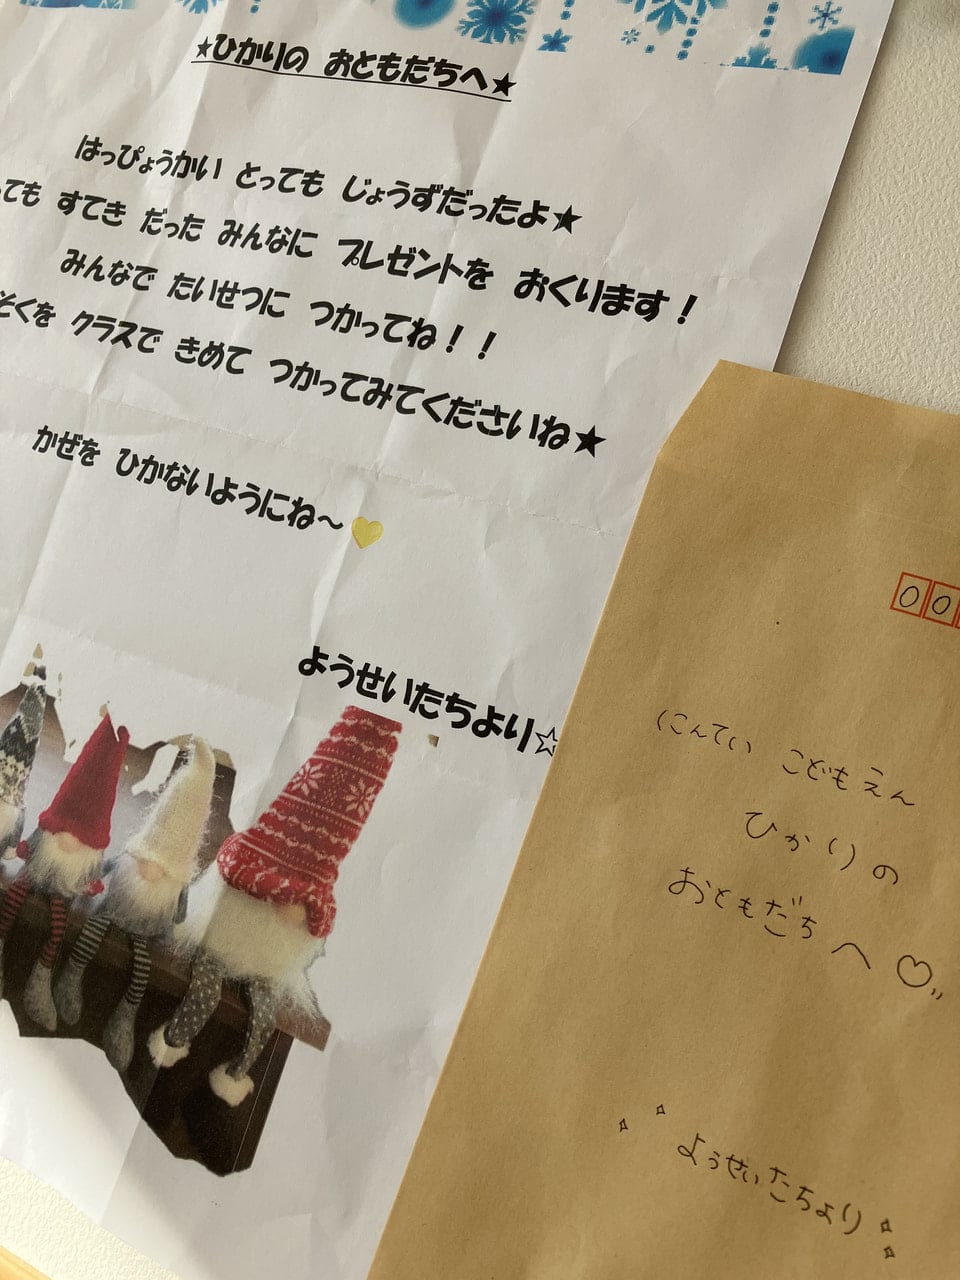 ★ひかりの おともだちへ★
はっぴょうかい とっても じょうずだったよ★
ても すてき だった みんなに プレゼントを おくります！
みんなで たいせつに つかってね！！
そくを クラスで きめて つかってみてくださいね★
かぜを ひかないようにね～💛
ようせいたちより☆
00
にんてい こどもえん
ひかりの
おともだち へ♡
ようせいたちより